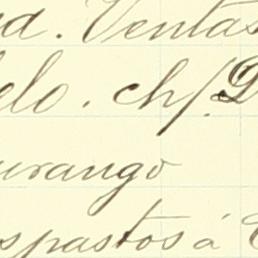 a. Ventas
elo. ch/. D
urango
spastos á